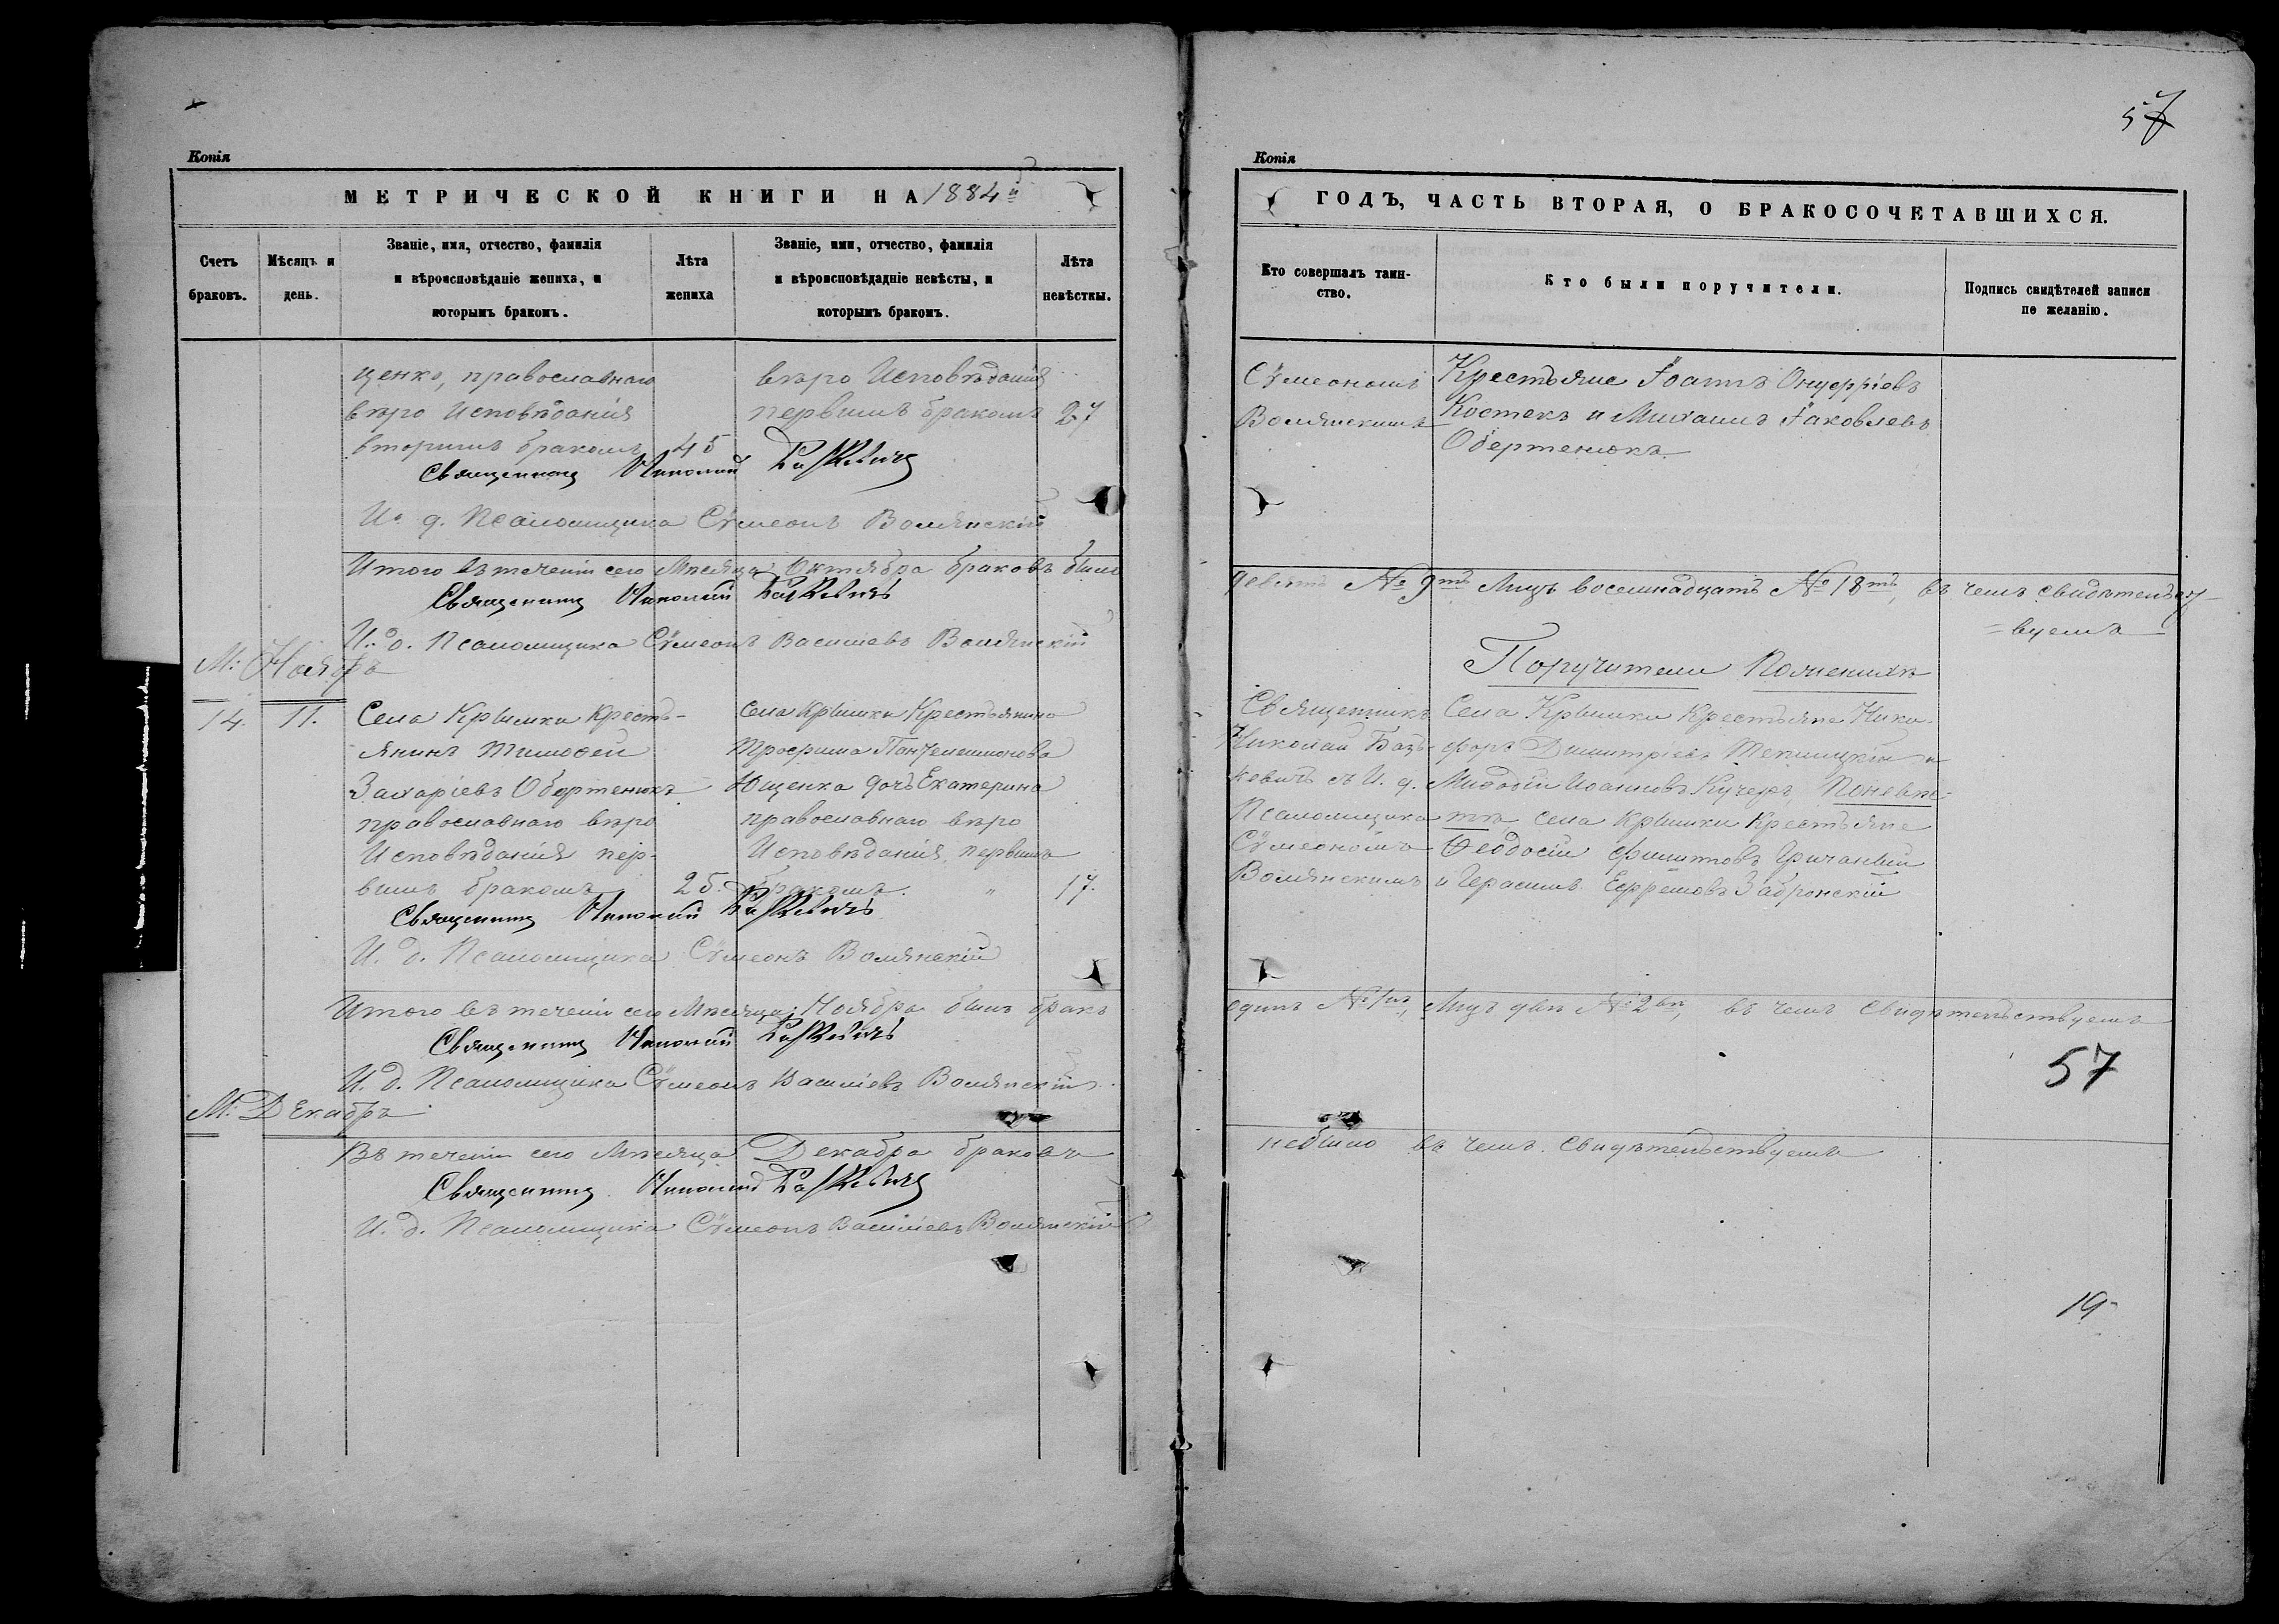 Копія
МЕТРИЧЕСКОЙ КНИГИ НА 1884й
Счетъ браковъ.
Мѣсяцъ и день.
Званіе, имя, отчество, фамилія и вѣроисповѣданіе жениха, и которымъ бракомъ.
Лѣта жениха
Званіе, имя, отчество, фамилія и вѣроисповѣдадніе невѣсты, и которымъ бракомъ.
Лѣта невѣсткы.
ценко, православнаго
вѣро Исповѣданія
вторымъ бракомъ 45
вѣро Исповѣданія
первымъ бракомъ 27
Священникъ Николай
И. д. Псаломщика Сѵмеонъ Волянскій
Итого въ теченіи сего Мѣсяца Октября браковъ было
Священникъ Николай
И. д. Псаломщика Сѵмеонъ Василіевъ Волянскій
М: Ноябрь
14. 11.
Села Крымки Кресть-
янинъ Тимофей
Захаріевъ Обертенюкъ
православнаго вѣро
Исповѣданія пер-
вымъ бракомъ 25.
Села Крымки Крестьянина
Трофима Пантелеимонова
Ющенка дочь Екатерина
православнаго вѣро
Исповѣданія, первымъ
бракомъ. " 17.
Священникъ Николай
И. д. Псаломщика Сѵмеонъ Волянскій
Итого въ теченіи сего Мѣсяца Ноября былъ бракъ
Священникъ Николай
И. д. Псаломщика Сѵмеонъ Василіевъ Волянскій
М: Декабрь
Въ теченіи сего Мѣсяца Декабря браковъ
Священникъ Николай
И. д. Псаломщика Сѵмеонъ Василіевъ Волянскій
57
Копія
ГОДЪ, ЧАСТЬ ВТОРАЯ, О БРАКОСОЧЕТАВШИХСЯ.
Кто совершалъ таин-
ство.
Кто были поручители.
Подпись свидѣтелей записи
по желанію.
Сѵмеономъ
Волянскимъ
Крестьяне Іоаннъ Онуфріевъ
Костекъ и Михаилъ Іаковлевъ
Обертенюкъ.
девять № 9ть Лицъ восемнадцать № 18ть, въ чемъ свидѣтельст-
=вуемъ
Поручители По женихѣ
Священникъ
Николай Баць-
кевичъ съ И. д.
Псаломщика
Сѵмеономъ
Волянскимъ
Села Крымки Крестьяне Ники-
форъ Димитріевъ и
Меѳодій Іоанновъ Кучеръ, По невѣс-
тѣ села Крымки Крестьяне
Ѳеодосій Филиповъ
и Герасимъ Ефремовъ
одинъ № 1нъ, Лицъ двѣ № 2вѣ, въ чемъ Свидѣтельствуемъ
57
небыло въ чемъ Свидѣтельствуемъ
19